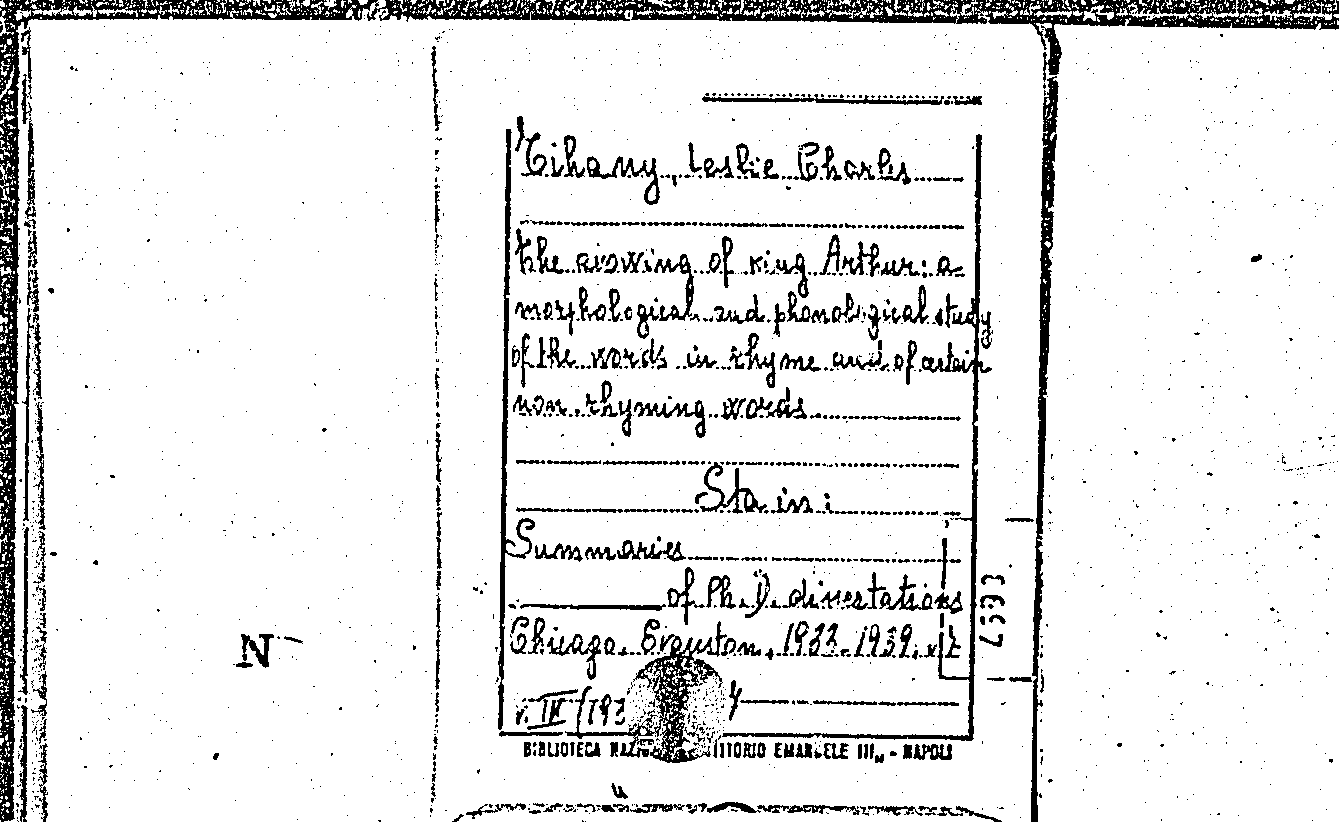 Tihany, Leslie Charles
the avowing of King Arthur: a
morphological and phonological study
of the words in rhyme and of certain
non rhyming words
Sta in:
Summaries
of Ph. D. dissertations
Chicago. Evanston, 1933-1939. v.
v. IV (193
BIBLIOTECA VITTORIO EMANUELE III„ - NAPOLI
N